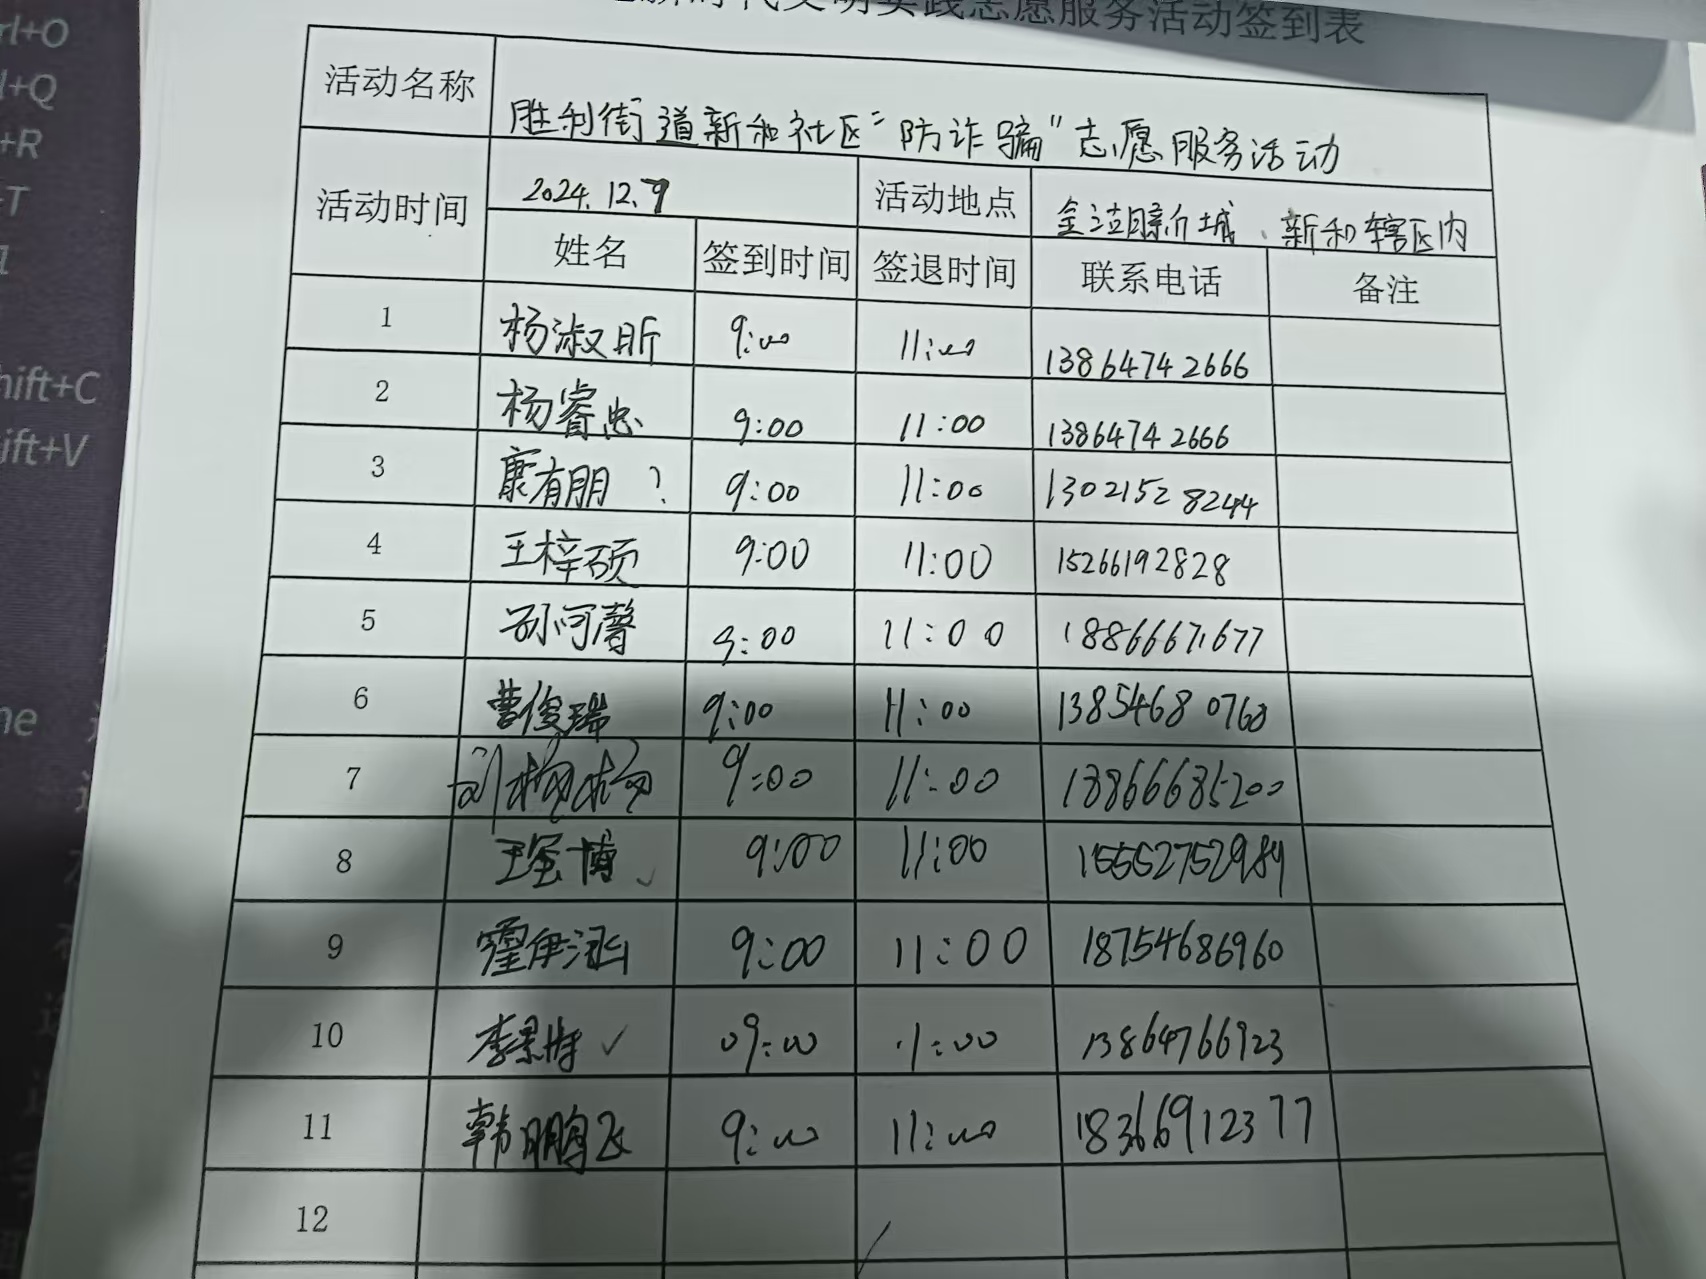 新时代文明实践志愿服务活动签到表
活动名称 胜利街道新和社区"防诈骗"志愿服务活动
活动时间 2024.12.9 活动地点 新城、新和辖区内
姓名 签到时间 签退时间 联系电话 备注
1 杨淑昕 9:00 11:00 13864742666
2 杨睿忠 9:00 11:00 13864742666
3 康有朋 ? 9:00 11:00 13021528244
4 王梓硕 9:00 11:00 15266192828
5 孙可馨 9:00 11:00 18866671677
6 曹俊瑞 9:00 11:00 13854680760
7 刘杨杨 9:00 11:00 13866685200
8 博 ✓ 9:00 11:00 15552752984
9 霍伊涵 9:00 11:00 18754686960
10 李景 ✓ 09:00 11:00 13864766923
11 韩鹏飞 9:00 11:00 18366912377
12
rl+O
l+Q
+R
+T
hift+C
ift+V